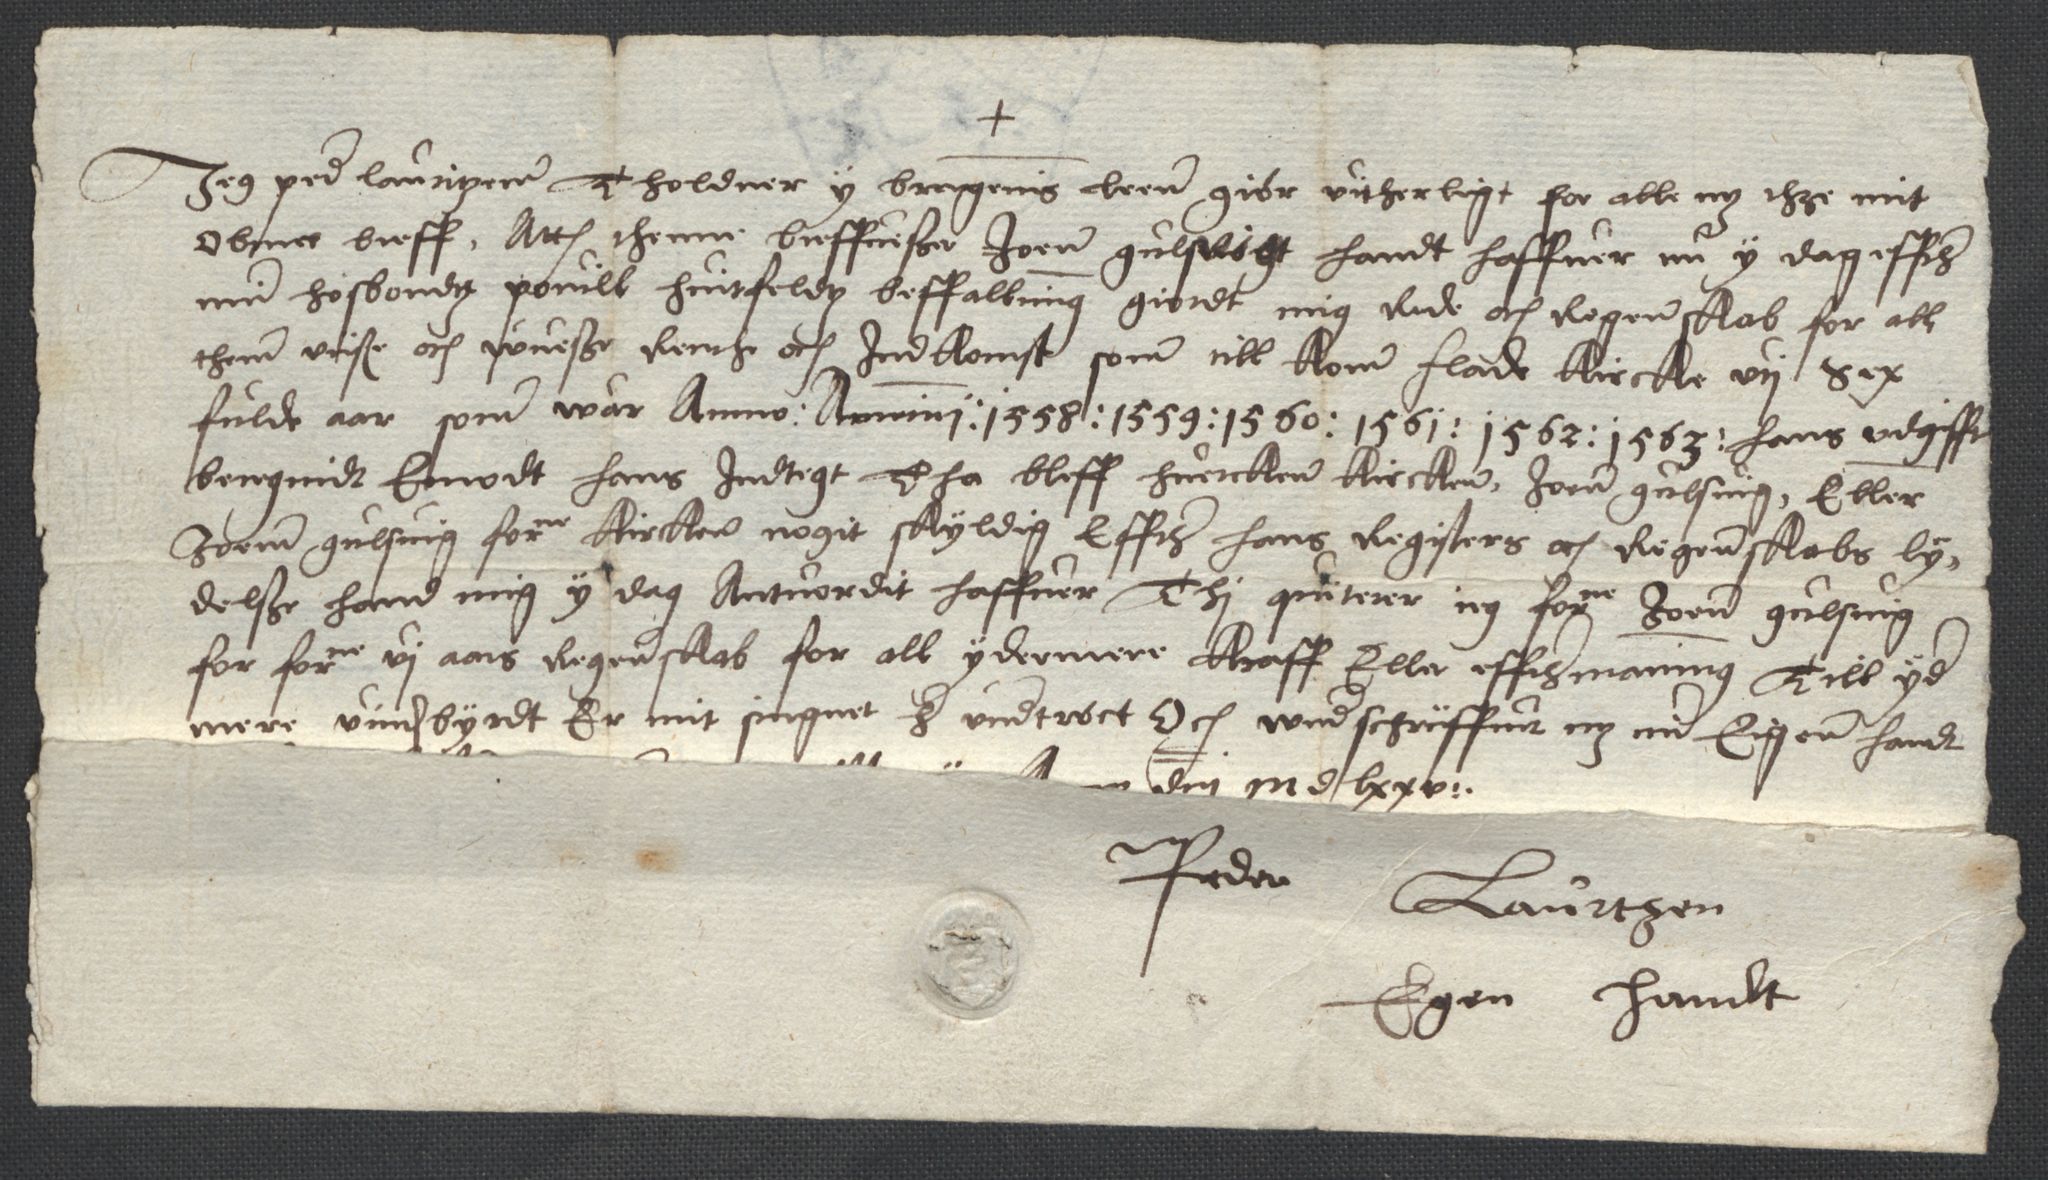 +
Jeg peder lauritzenn Tholdner y bragenis leen giør vitherligt for alle m3 thze mit
Obnee breff, Att thenne breffuesze Joenn gulsuigt handt haffuer nu y dag effth
min hosbondz pouill huitfeldz beffallning giordt mig Rede och Regennskab for all
thenn visse och wuesze Renthe och Indkomst som till kom flade kircke vij Sex
fulde aar som war Anno: 1558: 1559: 1560: 1561: 1562: 1563: hans vdgifft
beregnidt Emodt hans Indtegt Tha bleff huercken kircken, Joen gulsuig, Eller
Joenn gulsuig forne kircken nogit skyldig Effth hans Registers och Regennskabs ly,
delsze hand mig y dag Antuordit haffuer Thj quiterer ieg forne Joenn gulsuig
for forne vj aars Regennskab for all ydermere kraff Eller effthmaning Till yd
mere vindsbyrdt Er mit singnet h vndtrøct Och wndschriffuit m3 min Eigenn handt
dni md lxxv:.
Peder Laurtzen
Egen Handt